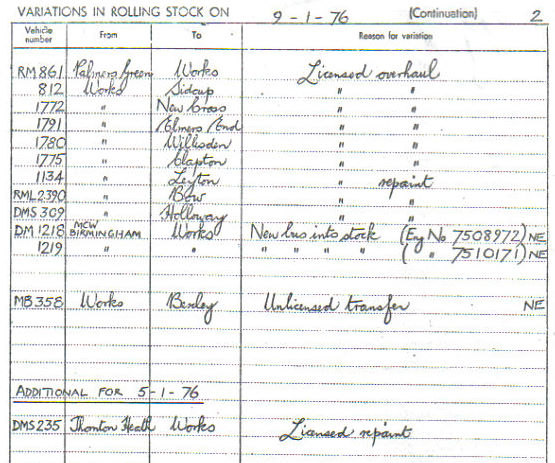 VARIATIONS IN ROLLING STOCK ON 9-1-76 (Continuation) 2
Vehicle number From To Reason for variation
RM 861 Palmers Green Works Licensed overhaul
812 Works Sidcup " "
1772 " New Cross " "
1791 " Elmers End " "
1780 " Willesden " "
1775 " Clapton " "
1134 " Leyton " repaint
RML 2390 " Bow " "
DMS 309 " Holloway " "
DM 1218 MCW BIRMINGHAM Works New bus into stock (Eng No 7508972) NE
1219 " " " " " " ( " 7510171) NE
MB 358 Works Bexley Unlicensed transfer NE
ADDITIONAL FOR 5-1-76
DMS 235 Thornton Heath Works Licensed repaint